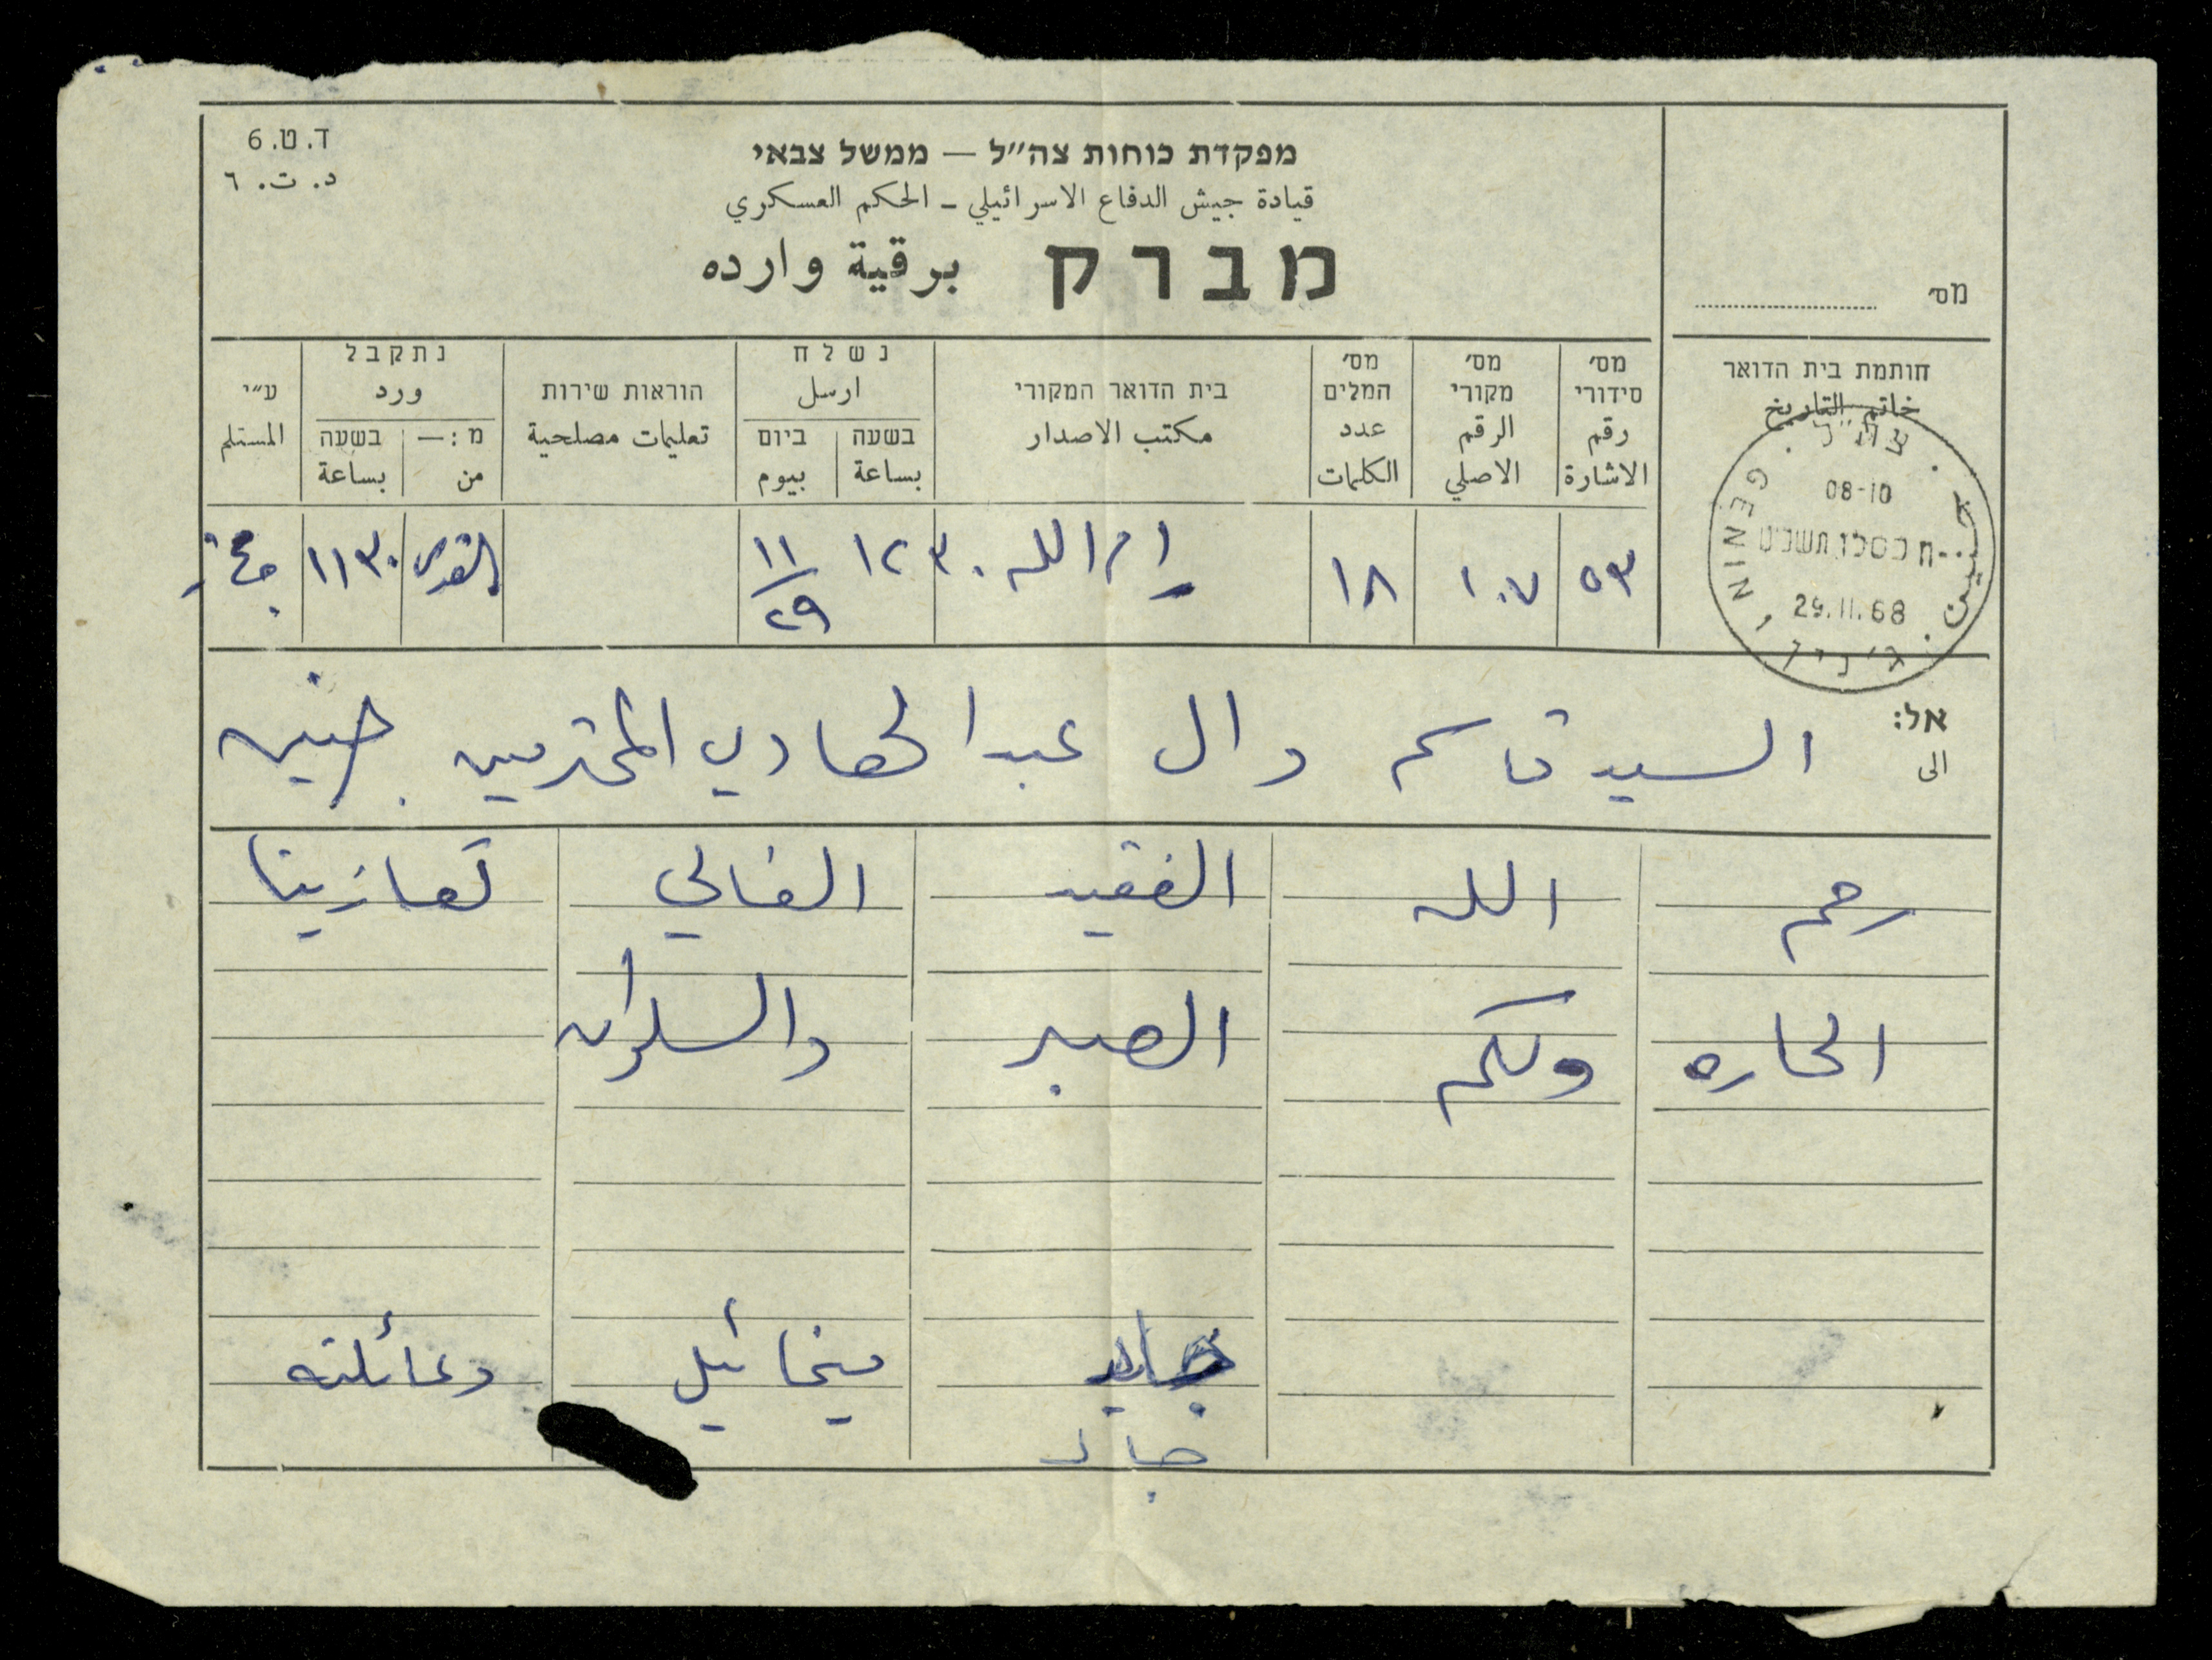 ד.ט.6
د. ت. ٦
מפקדת כוחות צה״ל — ממשל צבאי
قيادة جيش الدفاع الاسرائيلي ـ الحكم العسكري
מברק برقية وارده
מס׳
חותמת בית הדואר
خاتم التاريخ
מס׳ סידורי
رقم الاشارة
מס׳ מקורי
الرقم الاصلي
מס׳ המלים
عدد الكلمات
בית הדואר המקורי
مكتب الاصدار
נשלח
ارسل
בשעה
بساعة
ביום
بيوم
הוראות שירות
تعليمات مصلحية
נתקבל
ورد
מ: —
من
בשעה
بساعة
ע״י
المستلم
צה״ל
08-10
ח כסלו תשכ״ט
29.11.68
GENIN 1
جنين
ג׳נין
٥٣ ١٠٧ ١٨ رام الله ١٢٣٠ ١١/٢٩ القدس ١١٣٠
אל:
الى
السيد قاسم وال عبد الهادي المحترمين جنين
رحم الله الفقيد الغالي تعازينا
الحاره ولكم الصبر والسلوان
ميخائيل وعائلته